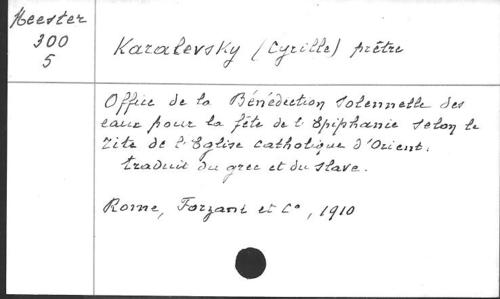 Meester
300
5
Karalevsky (Cyrille) prêtre
Office de la Bénédiction solennelle des
eaux pour la fête de l'Epiphanie selon le
rite de l'Eglise catholique d'Orient.
traduit du grec et du slave.
Rome, Forzani et Cº, 1910